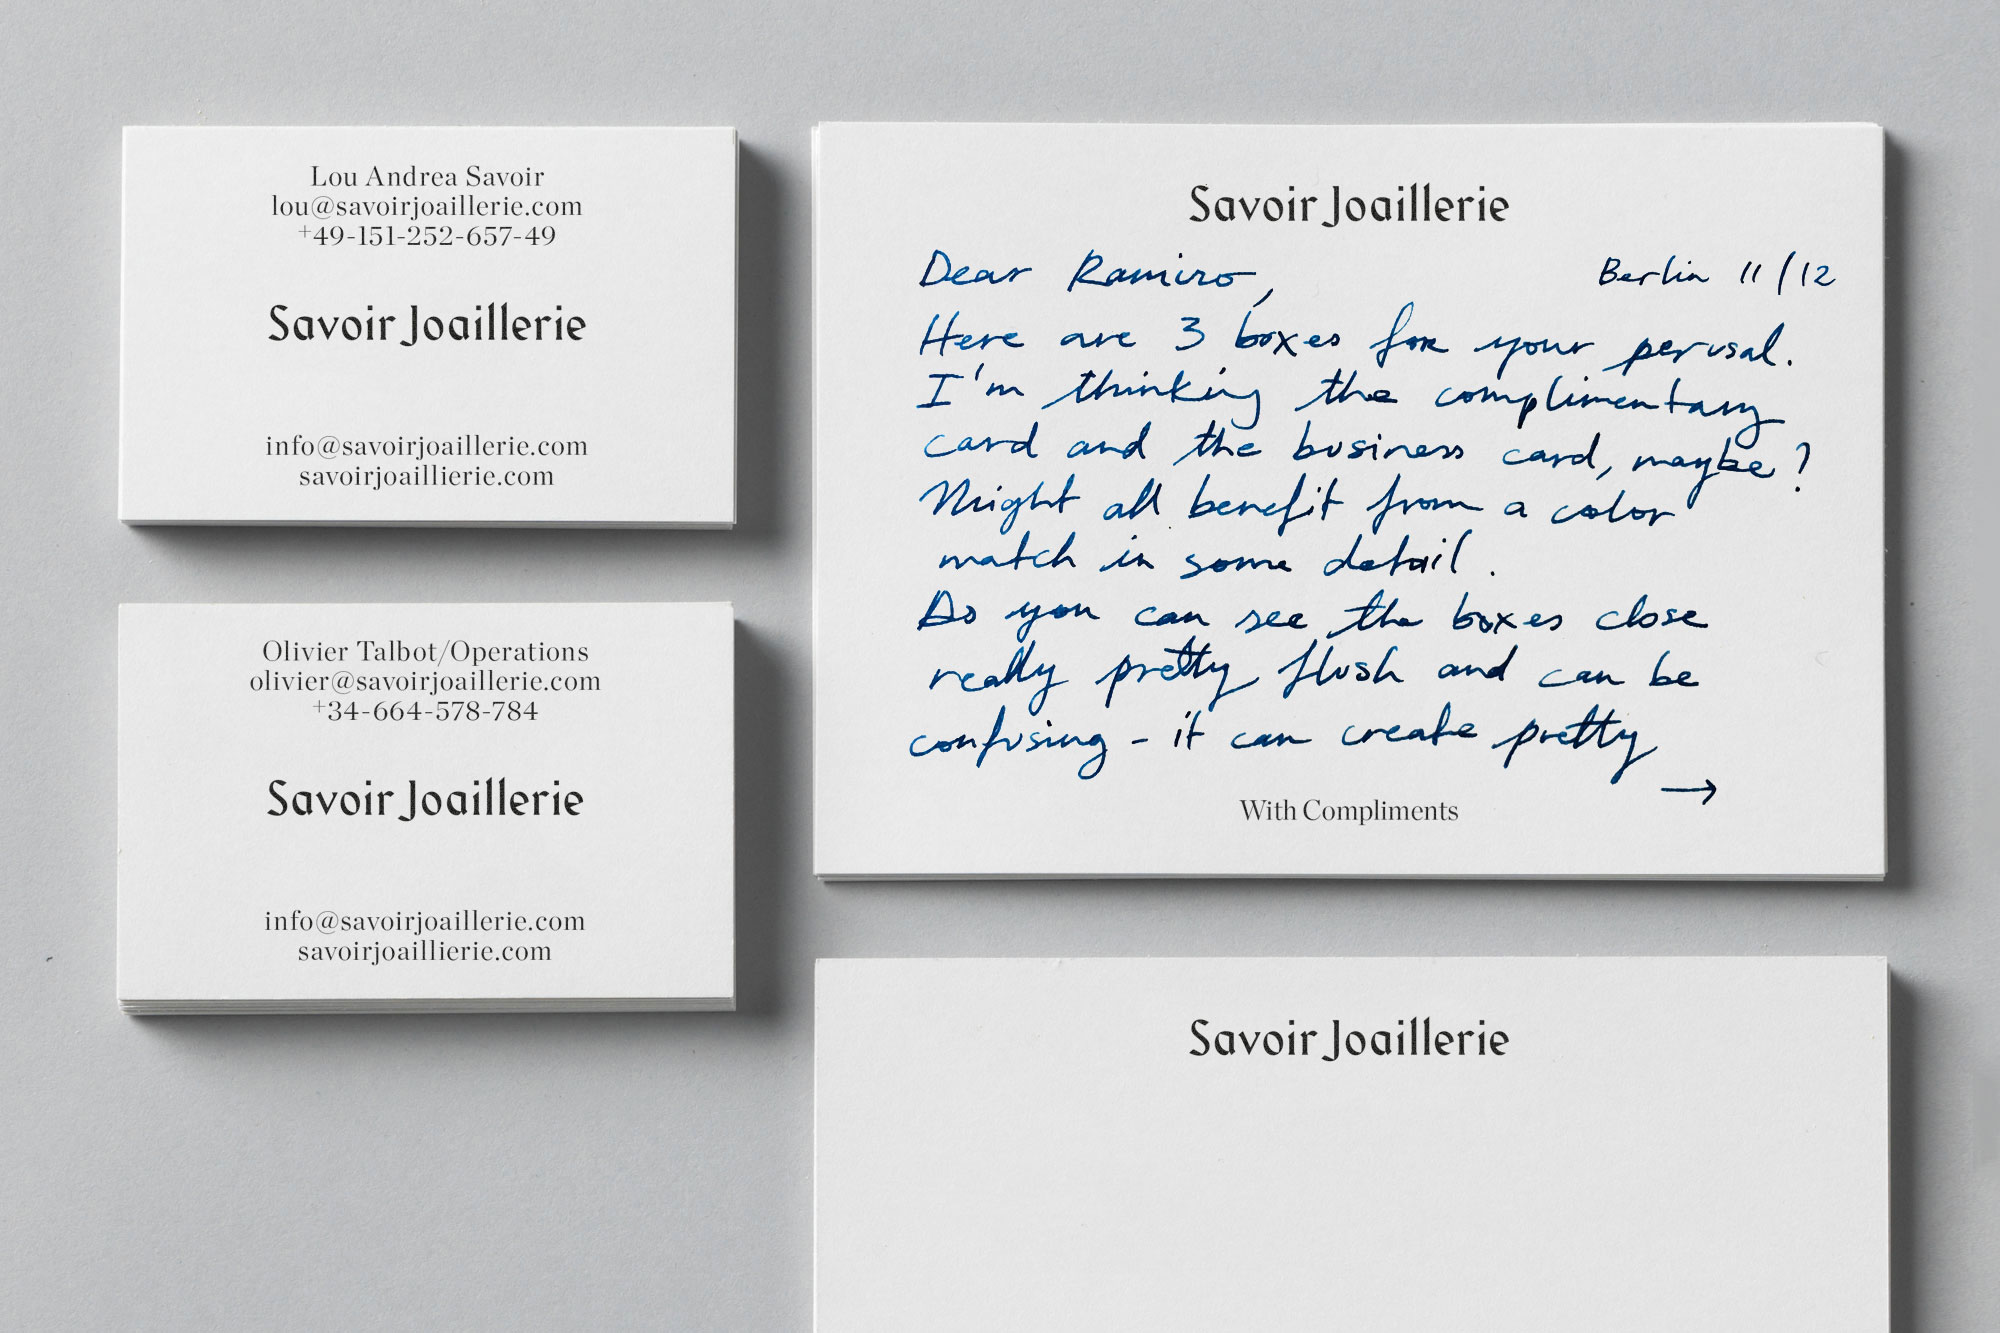 Lou Andrea Savoir
lou@savoirjoaillerie.com
+49-151-252-657-49
Savoir Joaillerie
info@savoirjoaillerie.com
savoirjoaillierie.com
Olivier Talbot/Operations
olivier@savoirjoaillerie.com
+34-664-578-784
Savoir Joaillerie
info@savoirjoaillerie.com
savoirjoaillierie.com
Savoir Joaillerie
Dear Ramiro,
Berlin 11/12
Here are 3 boxes for your perusal.
I'm thinking the complimentary
card and the business card, maybe?
Might all benefit from a color
match in some detail.
As you can see the boxes close
really pretty flush and can be
confusing - it can create pretty
→
With Compliments
Savoir Joaillerie